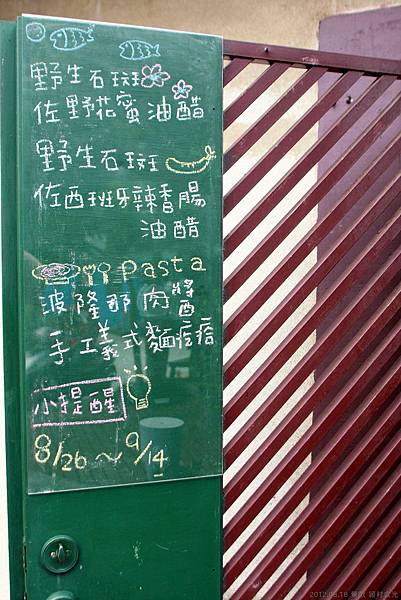 野生石斑
佐野花蜜油醋
野生石斑
佐西班牙辣香腸
油醋
Pasta
波隆那肉醬
手工義式麵疙瘩
小提醒
8/26～9/14